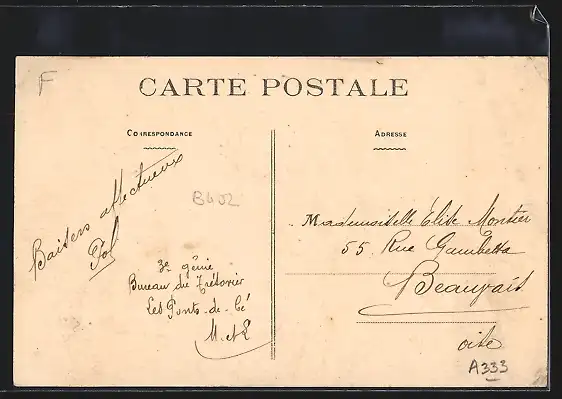 F
CARTE POSTALE
CORRESPONDANCE
ADRESSE
Baisers affectueux
Pol
B402
3e génie
Bureau du Trésorier
Les Ponts-de-Cé
M. et L
Mademoiselle Élise Montier
55 Rue Gambetta
Beauvais
oise
A333